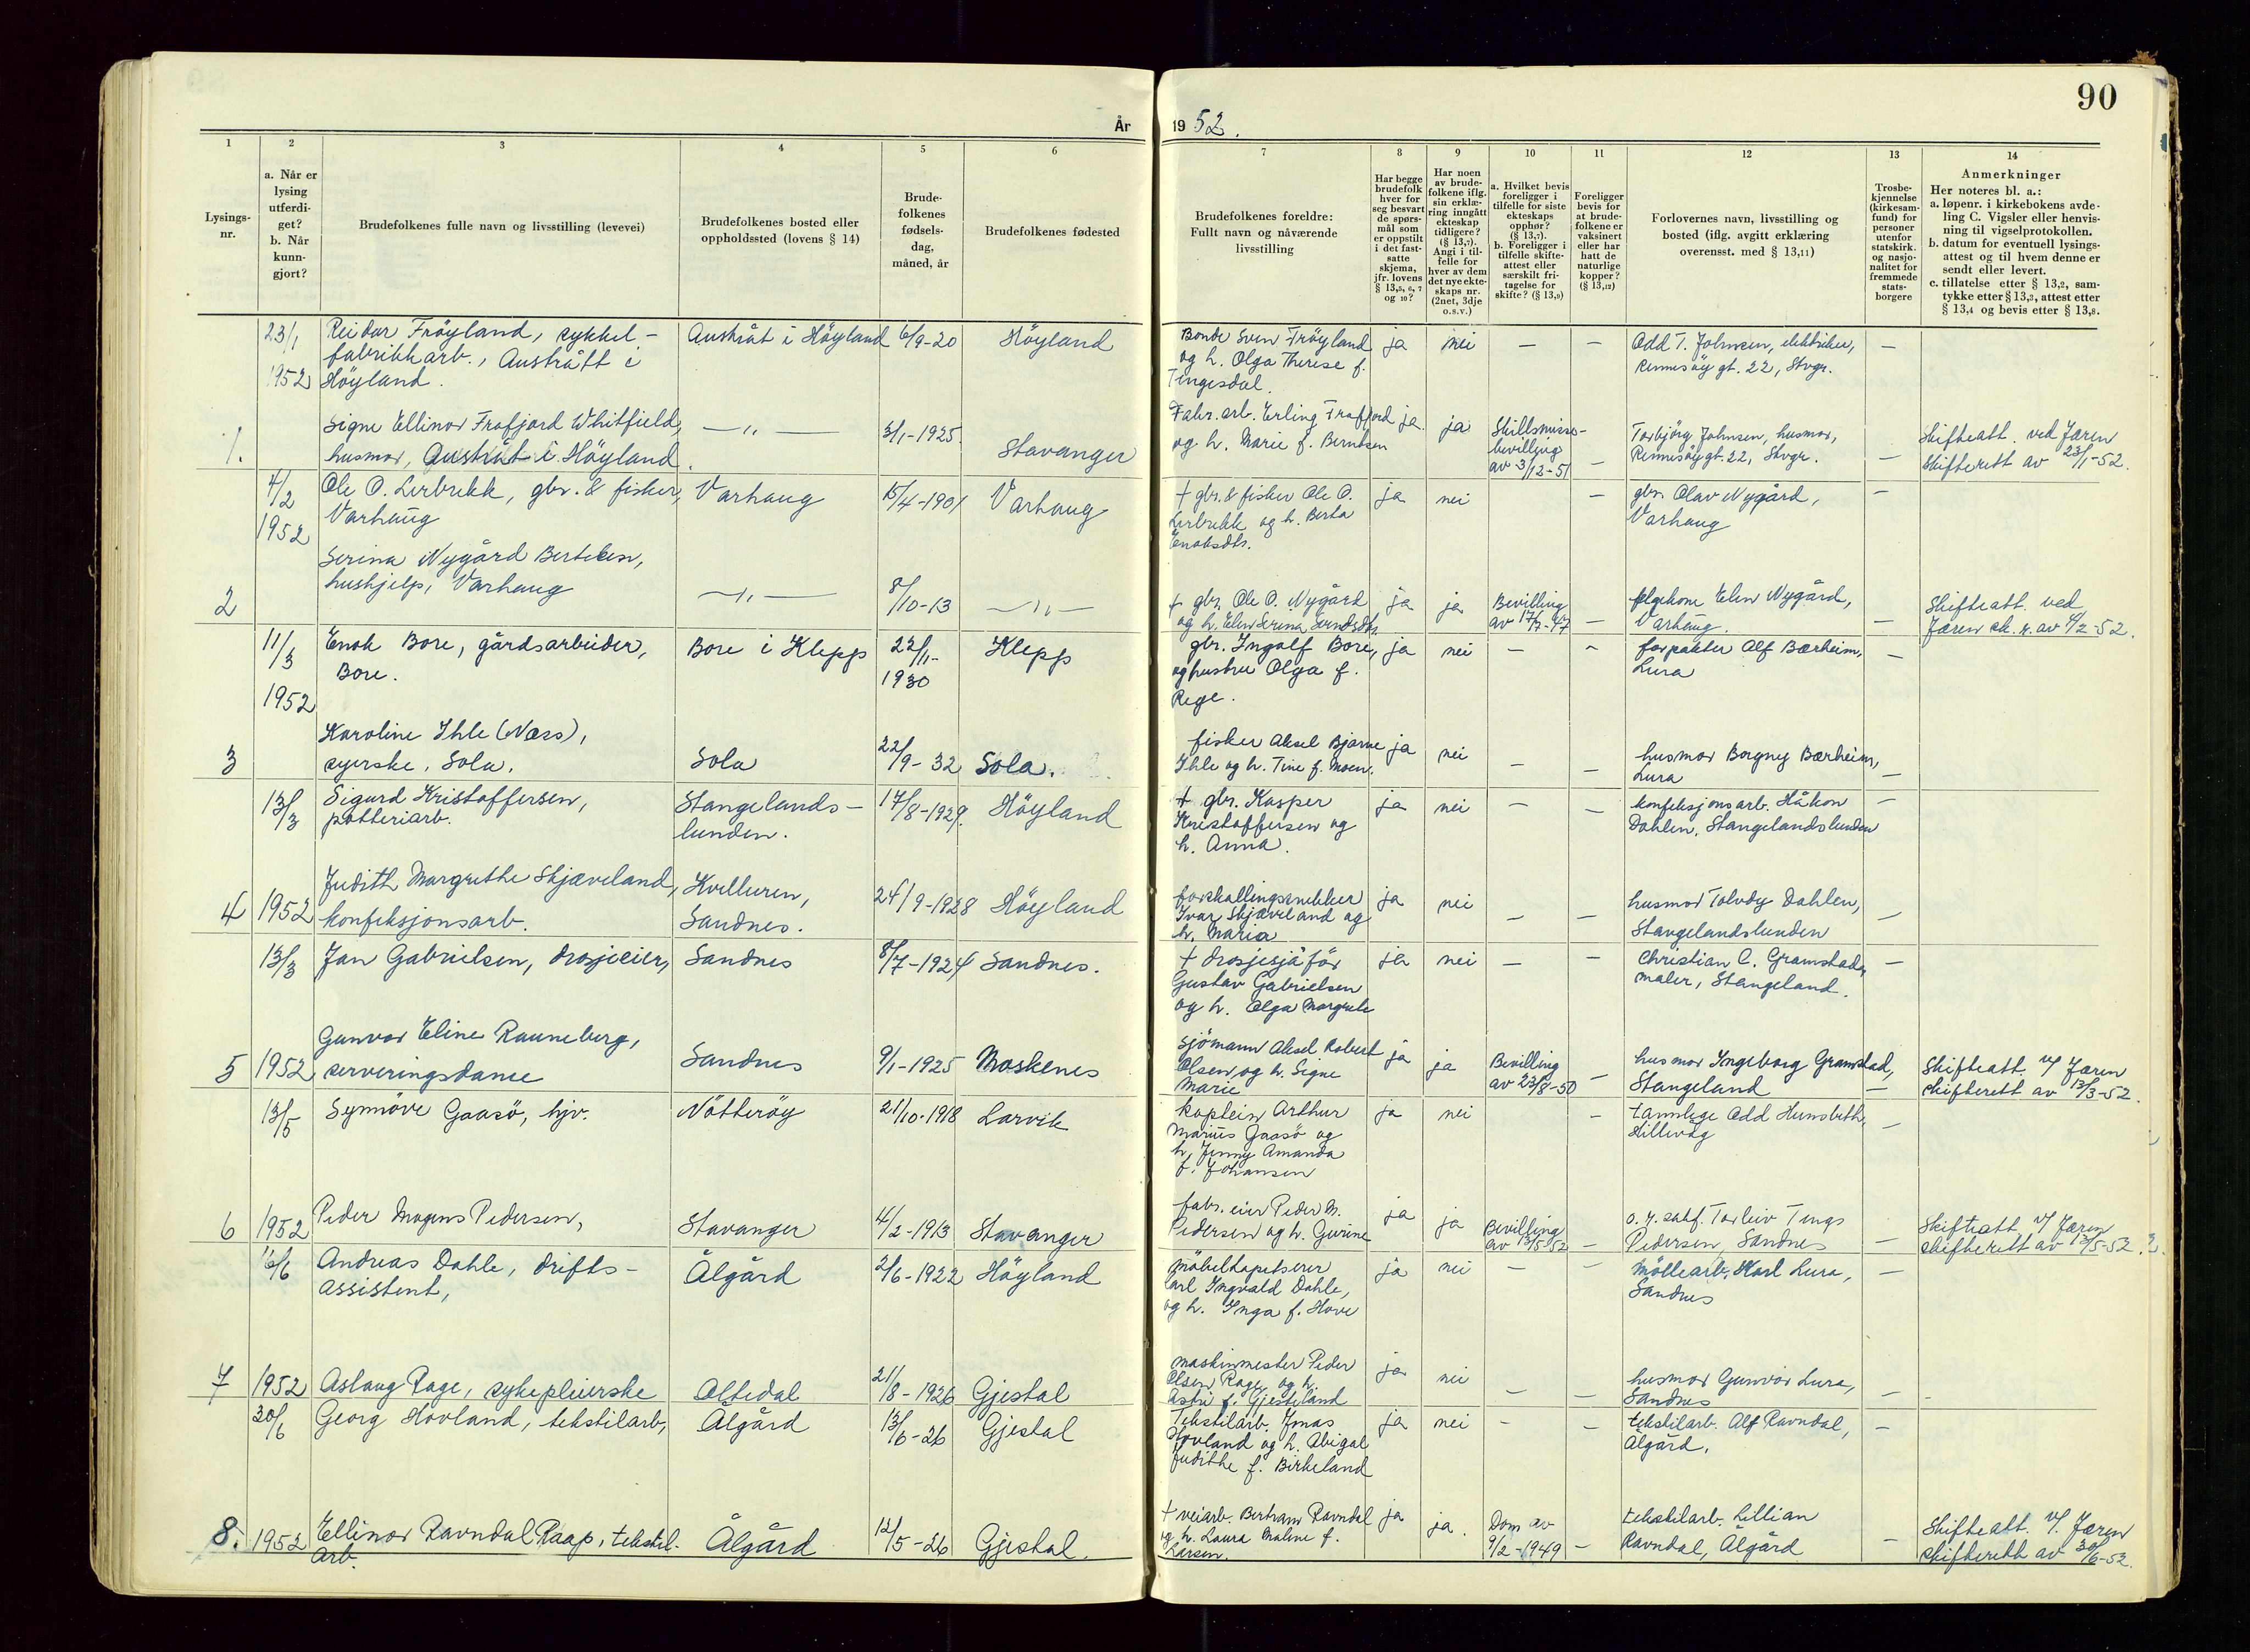 90
År 1952.
1
2
3
4
5
6
7
8
9
10
11
12
13
14
Lysings-
nr.
a. Når er
lysing
utferdi-
get?
b. Når
kunn-
gjort?
Brudefolkenes fulle navn og livsstilling (levevei)
Brudefolkenes bosted eller
oppholdssted (lovens § 14)
Brude-
folkenes
fødsels-
dag,
måned, år
Brudefolkenes fødested
Brudefolkenes foreldre:
Fullt navn og nåværende
livsstilling
Har begge
brudefolk
hver for
seg besvart
de spørs-
mål som
er oppstilt
i det fast-
satte
skjema,
jfr. lovens
§ 13,5, 6, 7
og 10?
Har noen
av brude-
folkene iflg.
sin erklæ-
ring inngått
ekteskap
tidligere?
(§ 13,7).
Angi i til-
felle for
hver av dem
det nye ekte-
skaps nr.
(2net, 3dje
o.s.v.)
a. Hvilket bevis
foreligger i
tilfelle for siste
ekteskaps
opphør?
(§ 13,7).
b. Foreligger i
tilfelle skifte-
attest eller
særskilt fri-
tagelse for
skifte? (§ 13,9)
Foreligger
bevis for
at brude-
folkene er
vaksinert
eller har
hatt de
naturlige
kopper?
(§ 13,12)
Forlovernes navn, livsstilling og
bosted (iflg. avgitt erklæring
overensst. med § 13,11)
Trosbe-
kjennelse
(kirkesam-
fund) for
personer
utenfor
statskirk.
og nasjo-
nalitet for
fremmede
stats-
borgere
Anmerkninger
Her noteres bl. a.:
a. løpenr. i kirkebokens avde-
ling C. Vigsler eller henvis-
ning til vigselprotokollen.
b. datum for eventuell lysings-
attest og til hvem denne er
sendt eller levert.
c. tillatelse etter § 13,2, sam-
tykke etter § 13,3, attest etter
§ 13,4 og bevis etter § 13,8.
23/1
1952
Reidar Fröyland, sykkel-
fabrikkarb., Austrått i
Höyland.
Austråt i Höyland
6/9-20
Höyland
Bonde Sven Fröyland
og h. Olga Therese f.
Tingesdal.
ja
nei
—
—
Odd T. Johnsen, elektriker,
Rennesöy gt. 22, Stvgr.
—
1.
Signe Ellinor Frafjord Whitfield,
husmor, Austråt i Höyland.
—„—
3/1-1925.
Stavanger
Fabr. arb. Erling Frafjord
og h. Marie f. Berntsen
ja
ja
Skillsmisse-
bevilling
av 3/12-51
—
Torbjörg Johnsen, husmor,
Rennesöygt. 22, Stvgr.
—
Skifteatt. ved Jæren
Skifterett av 23/1-52.
4/2
1952
Ole O. Lerbrekk, gbr. & fisker,
Varhaug
Varhaug
15/4-1901
Varhaug
+ gbr. & fisker Ole O.
Lerbrekk og h. Berta
Enoksdtr.
ja
nei
—
gbr. Olav Nygård,
Varhaug
—
2
Serina Nygård Bertelsen,
hushjelp, Varhaug
—„—
8/10-13
—„—
+ gbr. Ole O. Nygård
og h. Elen Serina Svendsdtr.
ja
ja
Bevilling
av 17/7-47
—
Elen Nygård,
Varhaug.
—
Skifteatt. ved
Jæren sk. r. av 4/2-52.
11/3
1952
Enok Bore, gårdsarbeider,
Bore.
Bore i Klepp
22/11-
1930
Klepp
gbr. Ingolf Bore,
og hustru Olga f.
Rege.
ja
nei
—
—
forpakter Alf Bærheim,
Lura
—
3
Karoline Ihle (Næss),
syerske, Sola.
Sola
22/9-32
Sola.
fisker Aksel Bjarne
Ihle og h. Tine f. Moen.
ja
nei
—
—
husmor Borgny Bærheim,
Lura
—
13/3
Sigurd Kristoffersen,
potteriarb.
Stangelands-
lunden.
17/8-1929.
Höyland
+ gbr. Kasper
Kristoffersen og
h. Anna.
ja
nei
—
—
konfeksjonsarb. Håkon
Dahlen, Stangelandslunden
—
4
1952
Judith Margrethe Skjæveland,
konfeksjonsarb.
Kvelluren,
Sandnes.
24/9-1928
Höyland
forskallingsnekker
Ivar Skjæveland og
h. Maria
ja
nei
—
—
husmor Tolvdy Dahlen,
Stangelandslunden
—
13/3
Jan Gabrielsen, drosjeeier,
Sandnes
8/7-1924
Sandnes.
+ drosjesjåför
Gustav Gabrielsen
og h. Olga Margrete
ja
nei
—
—
Christian C. Gramstad,
maler, Stangeland.
—
5
1952
Gunvor Eline Rauneberg,
serveringsdame
Sandnes
9/1-1925
Moskenes
sjömann Aksel Robert
Olsen og h. Signe
Marie
ja
ja
Bevilling
av 23/8-50
—
husmor Ingeborg Gramstad,
Stangeland
—
Skifteatt. v/ Jæren
skifterett av 13/3-52.
13/5
Synnöve Gaasö, hjv.
Nötteröy
21/10-1918
Larvik
kaptein Arthur
Marius Gaasö og
h. Jenny Amanda
f. Johansen
ja
nei
—
tannlege Odd Humbeth,
Hillevåg
—
6
1952
Peder Mogens Pedersen,
Stavanger
4/2-1913
Stavanger
fabr. eier Peder M.
Pedersen og h. Gurine
ja
ja
Bevilling
av 13/5-52
—
o.r. sakf. Torleiv Tengs
Pedersen, Sandnes
—
Skifteatt v/ Jæren
skifterett av 13/5-52.
16/6
Andreas Dahle, drifts-
assistent,
Ålgård
2/6-1922
Höyland
möbeltapetserer
Carl Ingvald Dahle,
og h. Inga f. Hove
ja
nei
—
—
Möllearb. Karl Lura,
Sandnes
—
7
1952
Aslaug Rage, sykepleierske
Oltedal
21/8-1926
Gjestal
maskinmester Peder
Olsen Rage og h.
Astri f. Gjesteland
ja
nei
—
—
husmor Gunvor Lura,
Sandnes
—
30/6
Georg Hovland, tekstilarb,
Ålgård
13/6-26
Gjestal
Tekstilarb. Jonas
Hovland og h. Abigal
Judithe f. Birkeland
ja
nei
—
—
tekstilarb. Alf Ravndal,
Ålgård.
—
8.
1952
Ellinor Ravndal Raap, tekstil-
arb.
Ålgård
12/5-26
Gjestal.
+ veiarb. Bertram Ravndal
og h. Laura Maline f.
Larsen.
ja
ja.
Dom av
9/2-1949
—
tekstilarb. Lillian
Ravndal, Ålgård
—
Skifteatt. v/. Jæren
skifterett av 30/6-52.